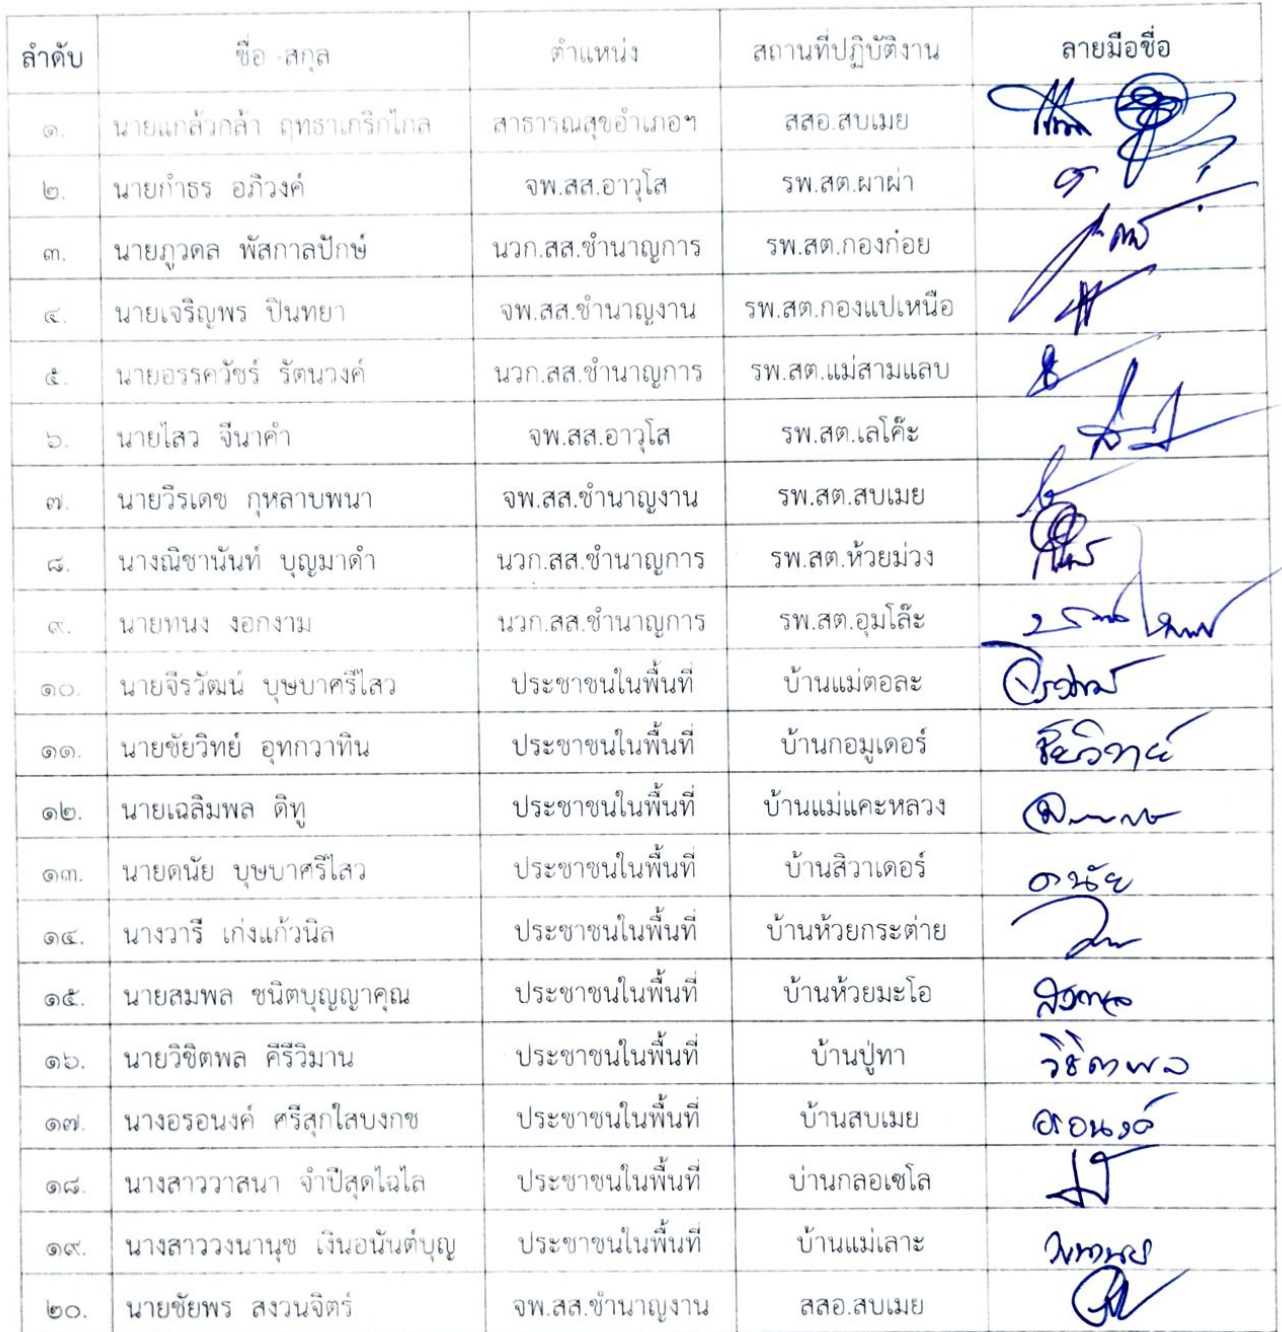 ลำดับ ชื่อ -สกุล ตำแหน่ง สถานที่ปฏิบัติงาน ลายมือชื่อ
๑. นายแกล้วกล้า ฤทธาเกริกไกล สาธารณสุขอำเภอฯ สสอ.สบเมย
๒. นายกำธร อภิวงค์ จพ.สส.อาวุโส รพ.สต.ผาผ่า
๓. นายภูวดล พัสกาลปักษ์ นวก.สส.ชำนาญการ รพ.สต.กองก๋อย
๔. นายเจริญพร ปินทยา จพ.สส.ชำนาญงาน รพ.สต.กองแปเหนือ
๕. นายอรรควัชร์ รัตนวงค์ นวก.สส.ชำนาญการ รพ.สต.แม่สามแลบ
๖. นายไสว จีนาคำ จพ.สส.อาวุโส รพ.สต.เลโค๊ะ
๗. นายวิรเดช กุหลาบพนา จพ.สส.ชำนาญงาน รพ.สต.สบเมย
๘. นางณิชานันท์ บุญมาดำ นวก.สส.ชำนาญการ รพ.สต.ห้วยม่วง
๙. นายทนง งอกงาม นวก.สส.ชำนาญการ รพ.สต.อุมโล๊ะ
๑๐. นายจีรวัฒน์ บุษบาศรีไสว ประชาชนในพื้นที่ บ้านแม่ตอละ
๑๑. นายชัยวิทย์ อุทกวาทิน ประชาชนในพื้นที่ บ้านกอมูเดอร์ ชัยวิทย์
๑๒. นายเฉลิมพล ดิทู ประชาชนในพื้นที่ บ้านแม่แคะหลวง
๑๓. นายดนัย บุษบาศรีไสว ประชาชนในพื้นที่ บ้านสิวาเดอร์ ดนัย
๑๔. นางวารี เก่งแก้วนิล ประชาชนในพื้นที่ บ้านห้วยกระต่าย
๑๕. นายสมพล ชนิตบุญญาคุณ ประชาชนในพื้นที่ บ้านห้วยมะโอ
๑๖. นายวิชิตพล คีรีวิมาน ประชาชนในพื้นที่ บ้านปู่ทา วิชิตพล
๑๗. นางอรอนงค์ ศรีสุกใสบงกช ประชาชนในพื้นที่ บ้านสบเมย อรอนงค์
๑๘. นางสาววาสนา จำปีสุดไฉไล ประชาชนในพื้นที่ บ่านกลอเซโล
๑๙. นางสาววงนานุช เงินอนันต์บุญ ประชาชนในพื้นที่ บ้านแม่เลาะ
๒๐. นายชัยพร สงวนจิตร์ จพ.สส.ชำนาญงาน สสอ.สบเมย